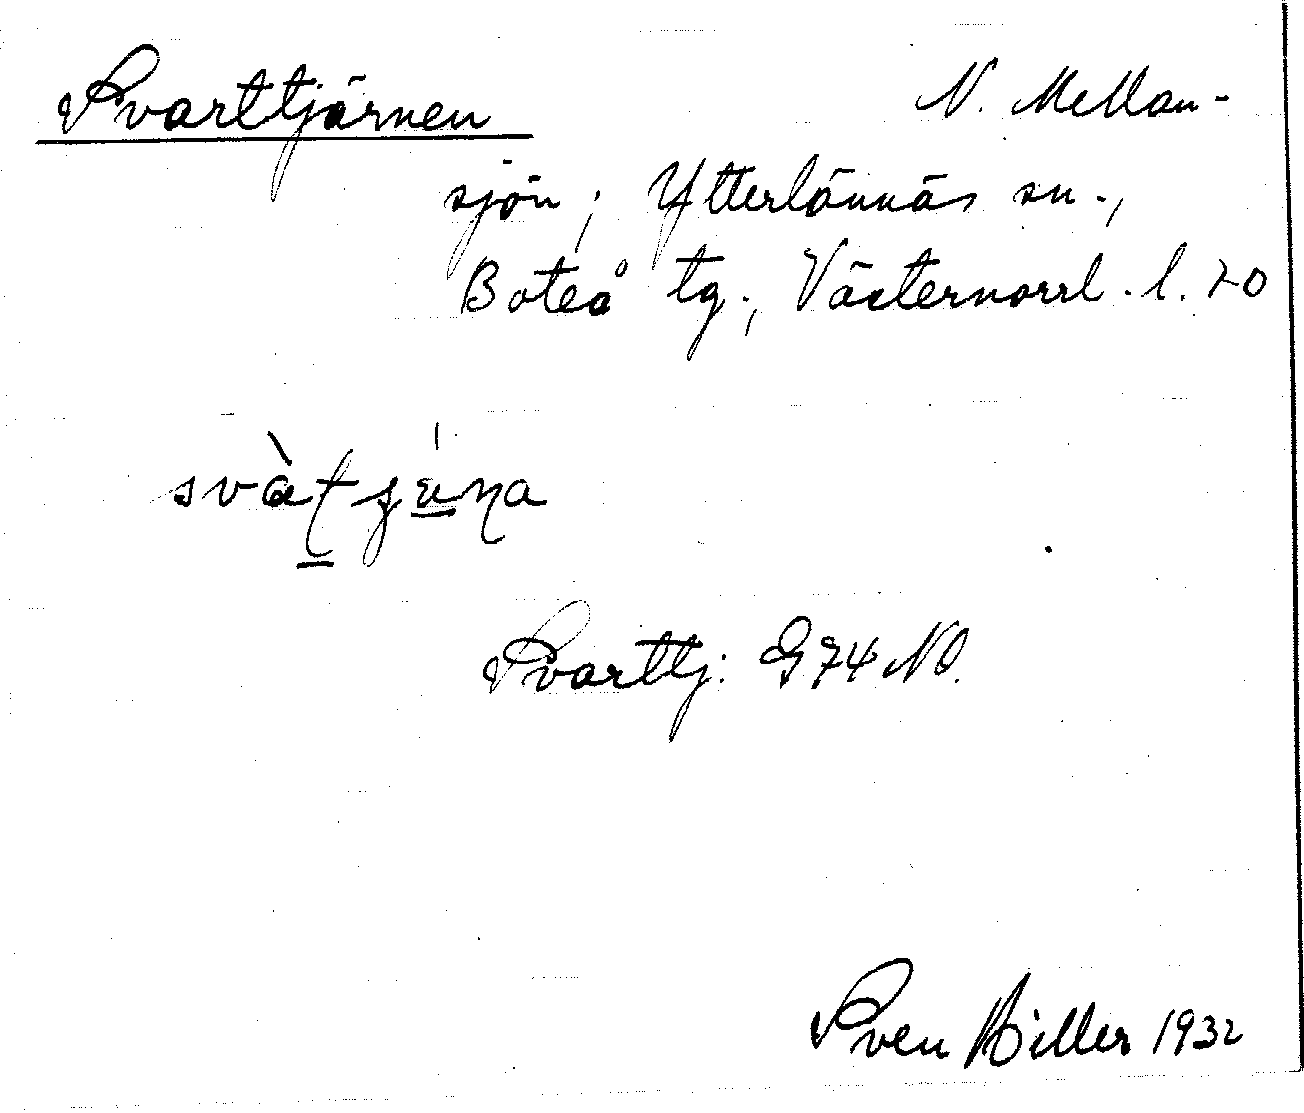 Svarttjärnen N. Mellan-
sjön; Ytterlännäs sn.,
Boteå tg., Västernorrl. l. 20
Svarttj: G74 NO.
Sven Hiller 1932